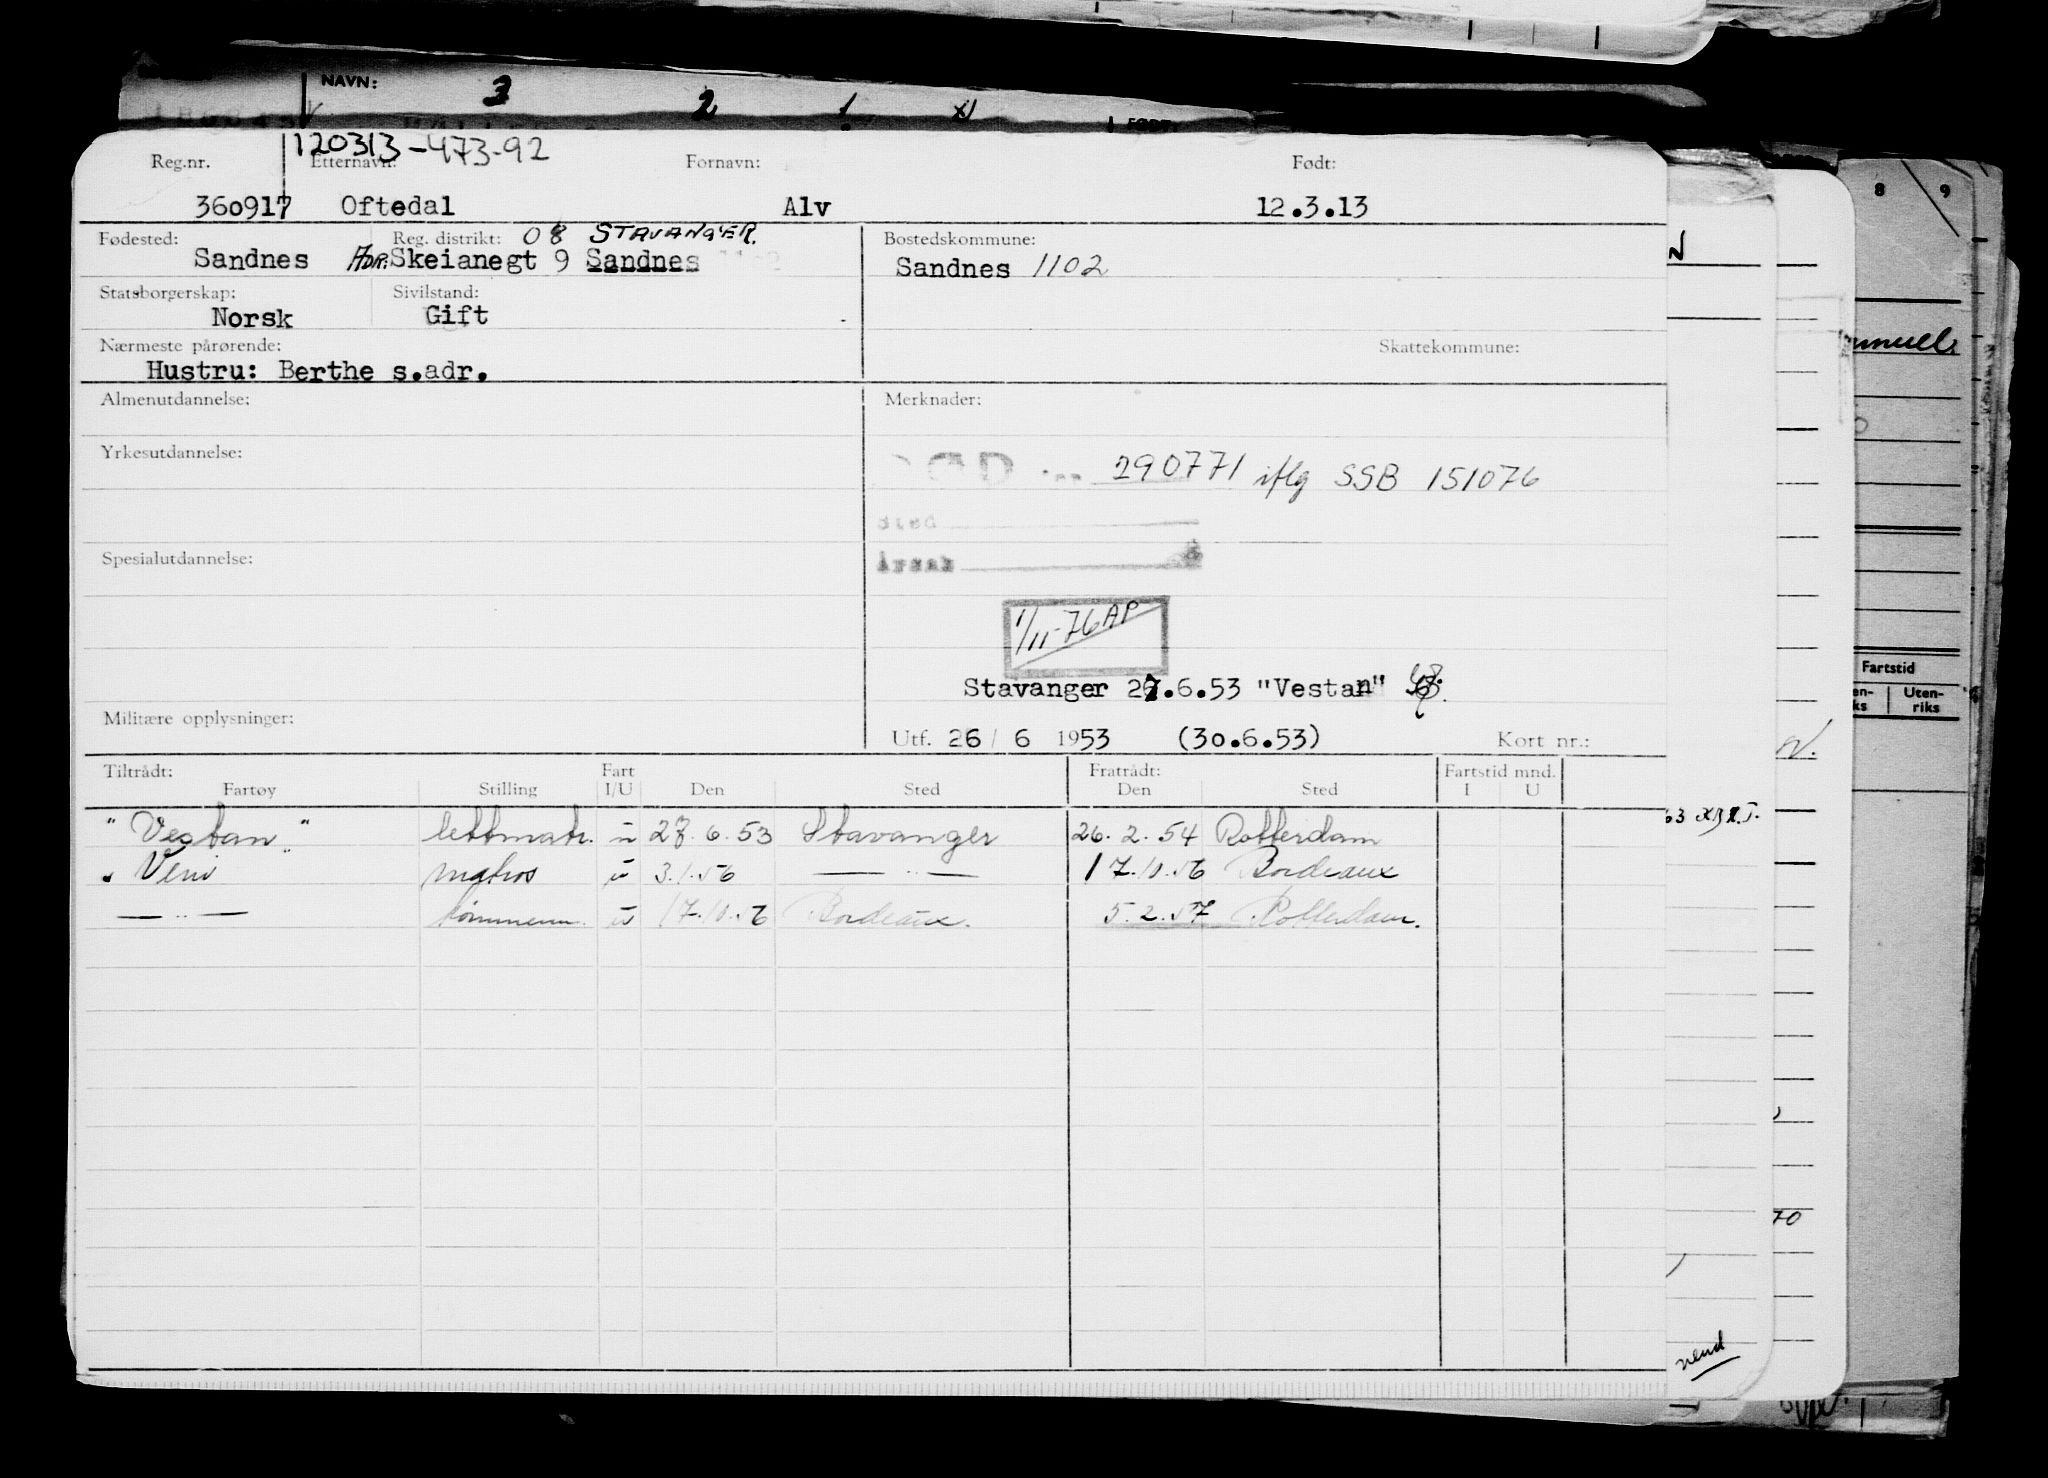 NAVN:
3 2 1 XJ
120313-473-92
Reg.nr. Etternavn: Fornavn: Født:
360917 Oftedal Alv 12.3.13
Fødested: Reg. distrikt: 08 STAVANGER. Bostedskommune:
Sandnes ADR. Skeianegt 9 Sandnes Sandnes 1102
Statsborgerskap: Sivilstand:
Norsk Gift
Nærmeste pårørende: Skattekommune:
Hustru: Berthe s.adr.
Almenutdannelse: Merknader:
Yrkesutdannelse:
290771 iflg SSB 151076
sted
Spesialutdannelse: Årsak
1/11-76 AP
Stavanger 27.6.53 "Vestan"
Militære opplysninger:
Utf. 26/ 6 1953 (30.6.53) Kort nr.:
Tiltrådt: Fart Fratrådt: Fartstid mnd.
Fartøy Stilling I/U Den Sted Den Sted I U
"Vestan" lettmatr. u 27.6.53 Stavanger 26.2.54 Rotterdam
"Veni" matros u 3.1.56 — " — 17.10.56 Bordeaux
— " — tømmerm. u 17.10.56 Bordeaux. 5.2.57 Rotterdam.
8 9
Fartstid
Uten-
riks
70